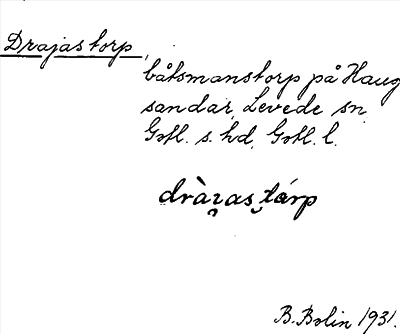 Drajastorp,
båtsmanstorp på Haug
sandar, Levede sn,
Gotl. s. hd, Gotl. l.
B. Bolin 1931.